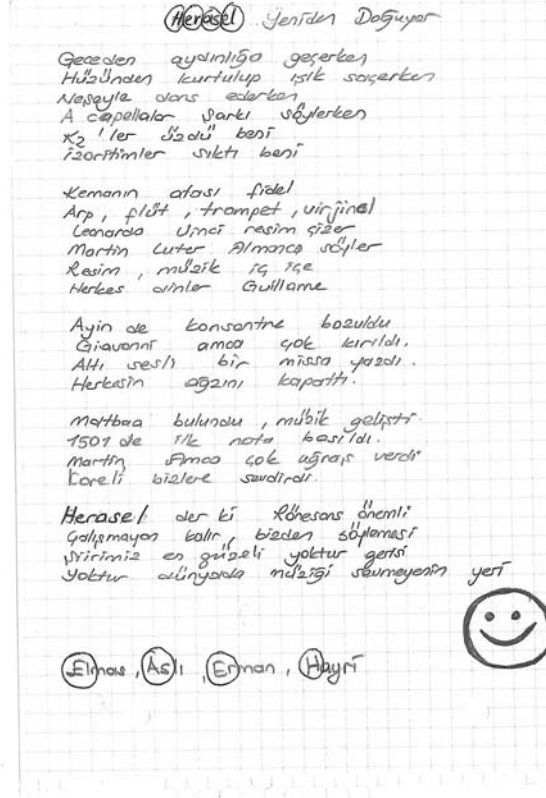 Herasel Yeniden Doğuyor
Geceden aydınlığa geçerken
Hüzünden kurtulup ışık saçarken
Neşeyle dans ederken
A capellalar şarkı söylerken
K2 'ler üzdü beni
İzoritimler sıktı beni
Kemanın atası fidel
Arp, flüt, trompet, virjinal
Leonardo Vinci resim çizer
Martin Luter Almanca söyler
Resim, müzik iç içe
Herkes dinler Guillame
Ayin de konsantre bozuldu
Giavanni amca çok kırıldı.
Altı sesli bir missa yazdı.
Herkesin ağzını kapattı.
Matbaa bulundu, müzik gelişti.
1501 de ilk nota basıldı.
Martin Amca çok uğraş verdi
Koreli bizlere sevdirdi.
Herasel der ki Rönesans önemli
Çalışmayan kalır, bizden söylemesi
Şiirimiz en güzeli yoktur gerisi
Yoktur dünyada müziği sevmeyenin yeri
Elmas, Aslı, Erman, Hayri